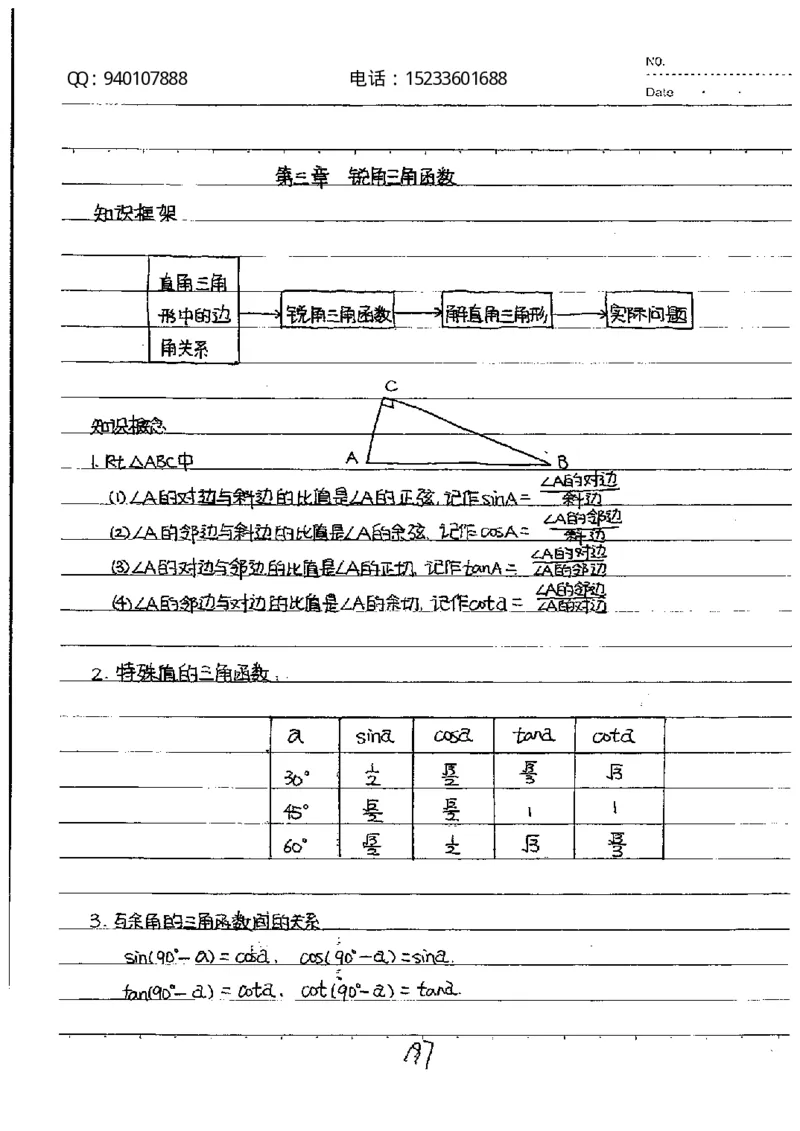 NO.
QQ：940107888 电话：15233601688
Date
第三章 锐角三角函数
知识框架
直角三角
形中的边
角关系
锐角三角函数
解直角三角形
实际问题
C
知识概念
A B
1. Rt△ABC中
(1)∠A的对边与斜边的比值是∠A的正弦,记作sinA=∠A的对边/斜边
(2)∠A的邻边与斜边的比值是∠A的余弦,记作cosA=∠A的邻边/斜边
(3)∠A的对边与邻边的比值是∠A的正切,记作tanA=∠A的对边/∠A的邻边
(4)∠A的邻边与对边的比值是∠A的余切,记作cota=∠A的邻边/∠A的对边
2. 特殊值的三角函数:
a sina cosa tana cota
30° 1/2 √3/2 √3/3 √3
45° √2/2 √2/2 1 1
60° √3/2 1/2 √3 √3/3
3. 互余角的三角函数间的关系
sin(90°-a)=cosa, cos(90°-a)=sina.
tan(90°-a)=cota, cot(90°-a)=tana.